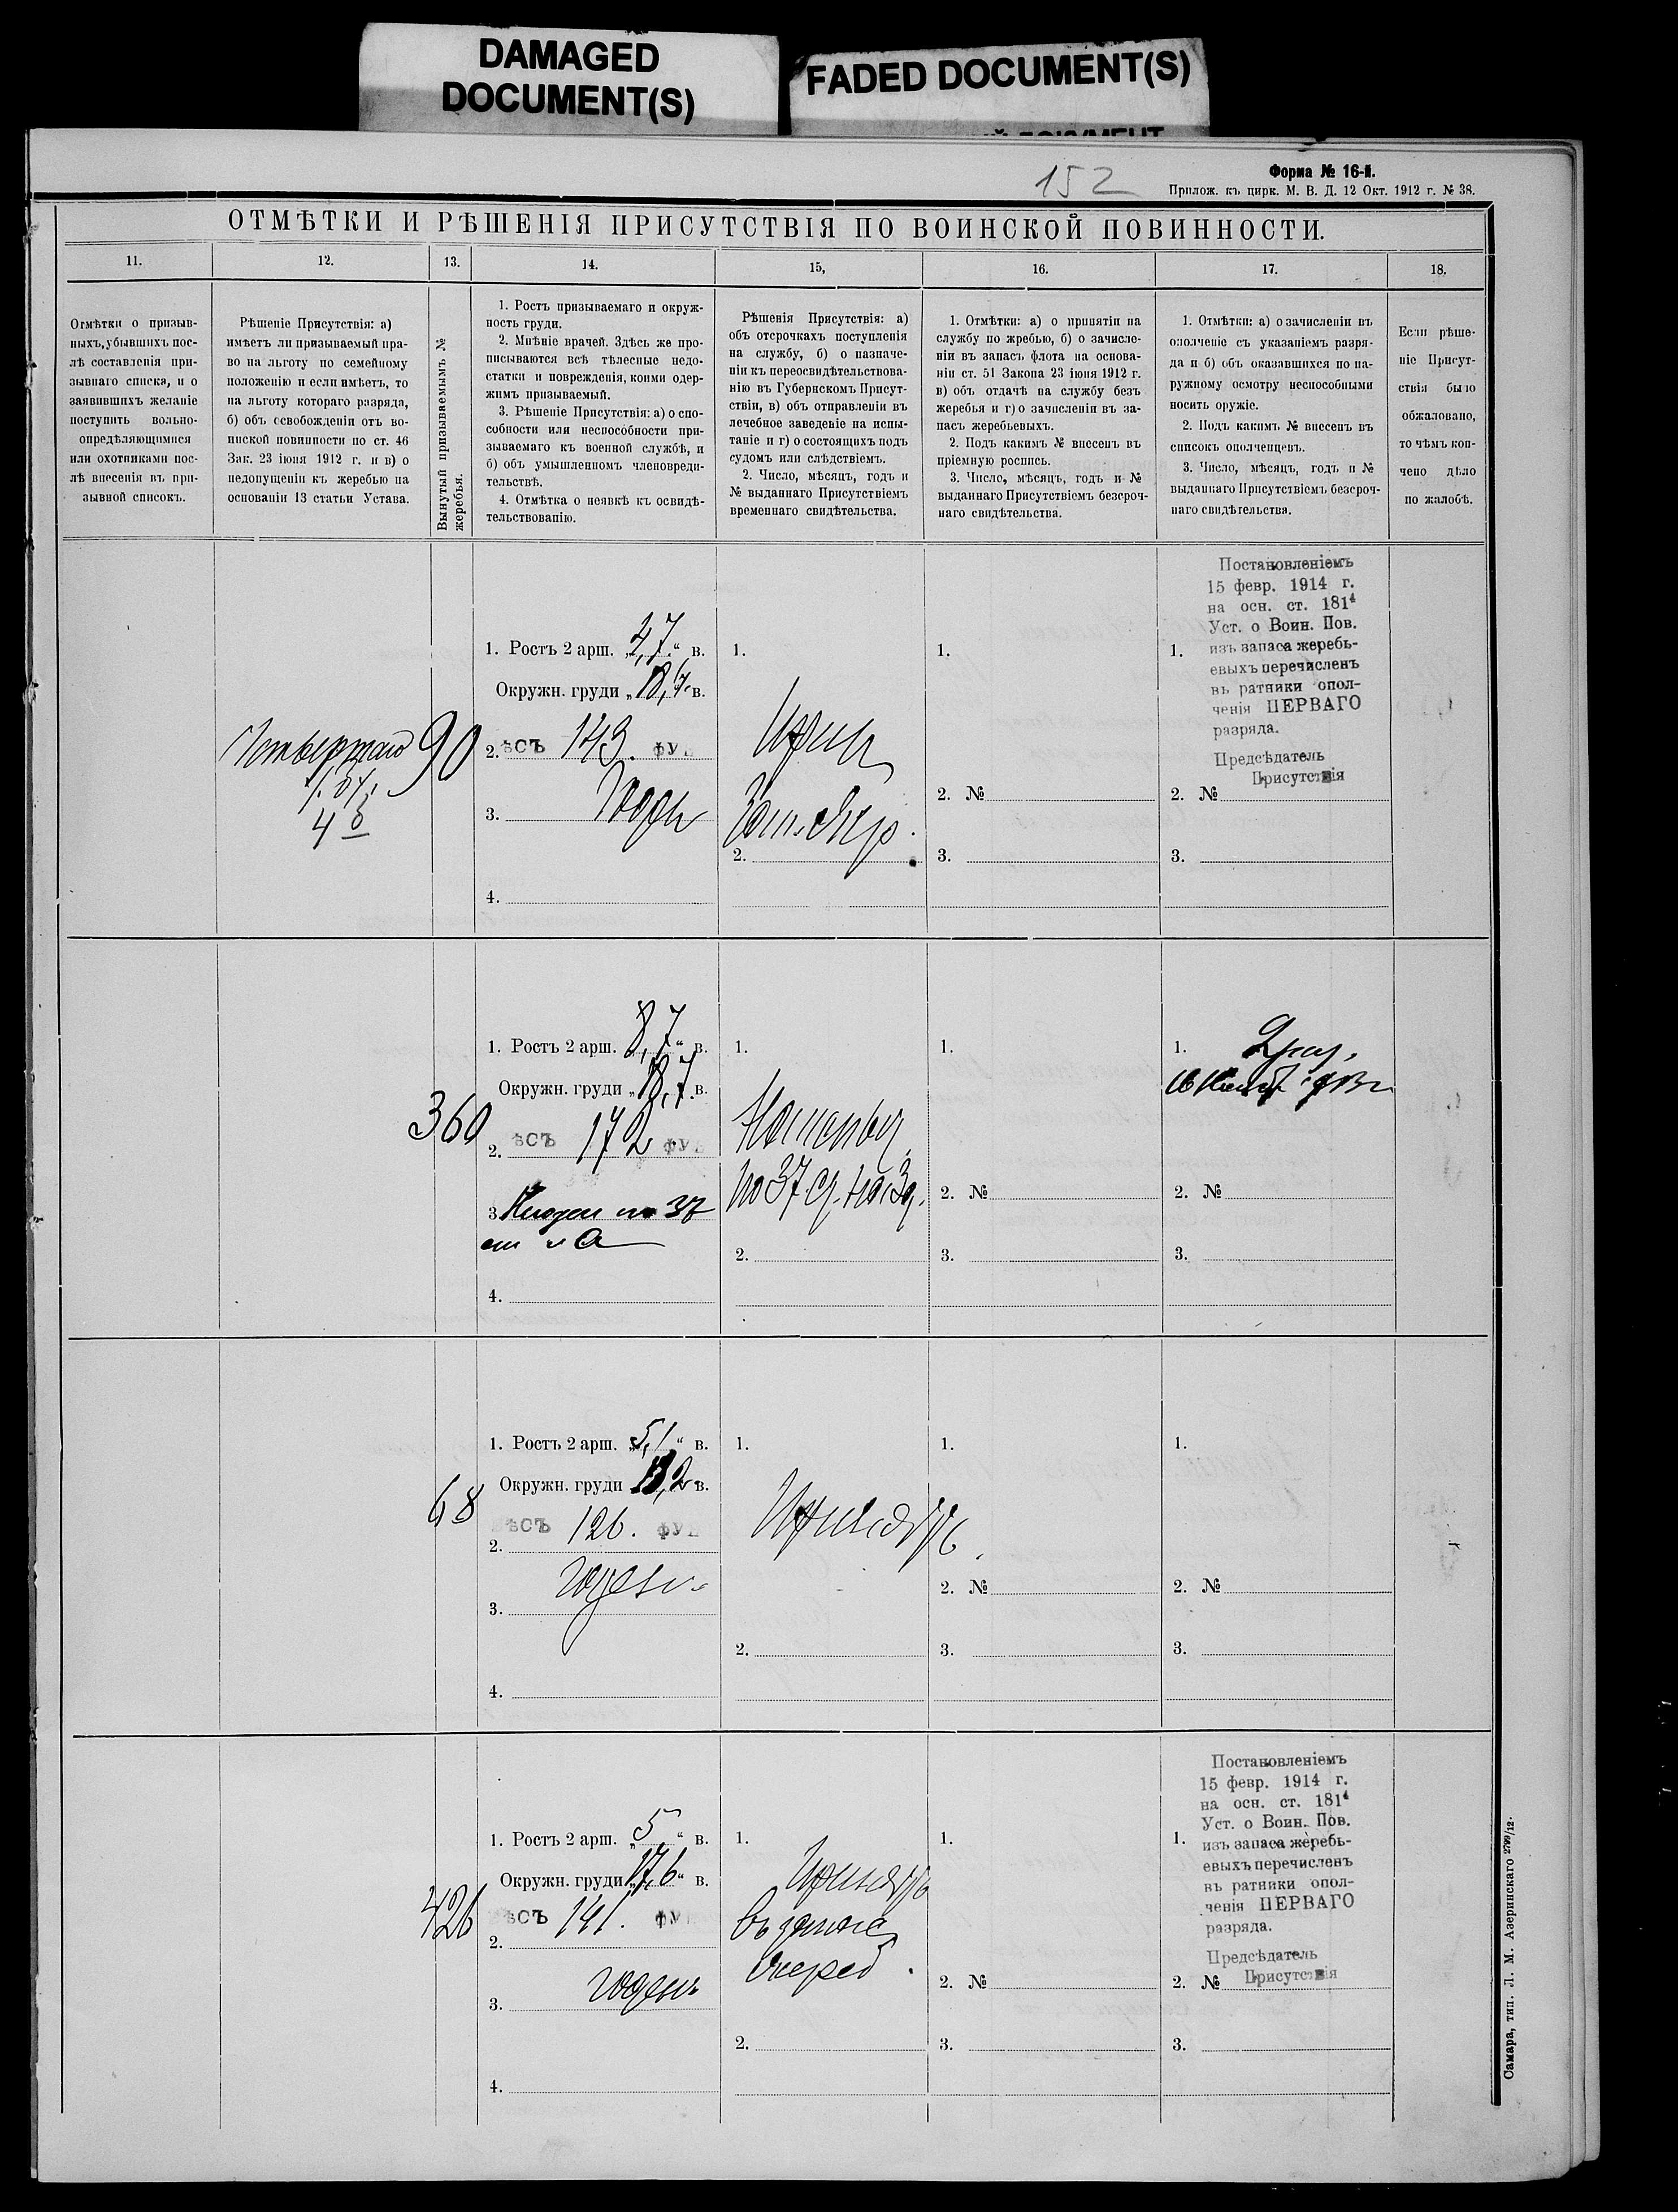 DAMAGED
DOCUMENT(S)
FADED DOCUMENT(S)
152
Форма № 16-й.
Прилож. къ цирк. М. В. Д. 12 Окт. 1912 г. № 38.
ОТМѢТКИ И РѢШЕНІЯ ПРИСУТСТВІЯ ПО ВОИНСКОЙ ПОВИННОСТИ.
11.
12.
13.
14.
15,
16.
17.
18.
Отмѣтки о призыв-
ныхъ, убывшихъ пос-
лѣ составленія при-
зывнаго списка, и о
заявившихъ желаніе
поступить вольно-
опредѣляющимися
или охотниками пос-
лѣ внесенія въ при-
зывной списокъ.
Рѣшеніе Присутствія: а)
имѣетъ ли призываемый пра-
во на льготу по семейному
положенію и если имѣетъ, то
на льготу котораго разряда,
б) объ освобожденіи отъ во-
инской повинности по ст. 46
Зак. 23 іюня 1912 г. и в) о
недопущеніи къ жеребью на
основаніи 13 статьи Устава.
Вынутый призываемымъ №
жеребья.
1. Ростъ призываемаго и окруж-
ность груди.
2. Мнѣніе врачей. Здѣсь же про-
писываются всѣ тѣлесные недо-
статки и поврежденія, коими одер-
жимъ призываемый.
3. Рѣшеніе Присутствія: а) о спо-
собности или неспособности при-
зываемаго къ военной службѣ, и
б) объ умышленномъ членовреди-
тельствѣ.
4. Отмѣтка о неявкѣ къ освидѣ-
тельствованію.
Рѣшенія Присутствія: а)
объ отсрочкахъ поступленія
на службу, б) о назначе-
ніи къ переосвидѣтельствова-
нію въ Губернскомъ Присут-
ствіи, в) объ отправленіи въ
лечебное заведеніе на испы-
таніе и г) о состоящихъ подъ
судомъ или слѣдствіемъ.
2. Число, мѣсяцъ, годъ и
№ выданнаго Присутствіемъ
временнаго свидѣтельства.
1. Отмѣтки: а) о принятіи на
службу по жребью, б) о зачисле-
ніи въ запасъ флота на основа-
ніи ст. 51 Закона 23 іюня 1912 г.
в) объ отдачѣ на службу безъ
жеребья и г) о зачисленіи въ за-
пасъ жеребьевыхъ.
2. Подъ какимъ № внесенъ въ
пріемную роспись.
3. Число, мѣсяцъ, годъ и №
выданнаго Присутствіемъ безсроч-
наго свидѣтельства.
1. Отмѣтки: а) о зачисленіи въ
ополченіе съ указаніемъ разря-
да и б) объ оказавшихся по на-
ружному осмотру неспособными
носить оружіе.
2. Подъ какимъ № внесенъ въ
списокъ ополченцевъ.
3. Число, мѣсяцъ, годъ и №
выданнаго Присутствіемъ безсроч-
наго свидѣтельства.
Если рѣше-
ніе Присут-
ствія было
обжаловано,
то чѣмъ кон-
чено дѣло
по жалобѣ.
Четвертаго
90
1. Ростъ 2 арш. „4,7“ в.
Окружн. груди „18,7 в.
2. ѣсъ 143. фу
3.
4.
1.
2.
1.
2. №
3.
Постановленіемъ
15 февр. 1914 г.
на осн. ст. 181⁴
Уст. о Воин. Пов.
1. изъ запаса жеребь-
евыхъ перечисленъ
въ ратники опол-
ченія ПЕРВАГО
разряда.
Предсѣдатель
Присутствія
2. №
3.
360
1. Ростъ 2 арш. „8,7“ в.
Окружн. груди „18,7 в.
2. ѣсъ 172 фу
3.
4.
1.
2.
1.
2. №
3.
1.
2. №
3.
68
1. Ростъ 2 арш. „5,1“ в.
Окружн. груди
2. ѣсъ 126. фу
3. годенъ
4.
1.
Принять
2.
1.
2. №
3.
1.
2. №
3.
426
1. Ростъ 2 арш. „5“ в.
Окружн. груди „17,6“ в.
2. ѣсъ 141. фу
3. годенъ
4.
1.
Принять
2.
1.
2. №
3.
Постановленіемъ
15 февр. 1914 г.
на осн. ст. 181⁴
Уст. о Воин. Пов.
1. изъ запаса жеребь-
евыхъ перечисленъ
въ ратники опол-
ченія ПЕРВАГО
разряда.
Предсѣдатель
2. № Присутствія
3.
Самара, тип. Л. М. Азеринскаго